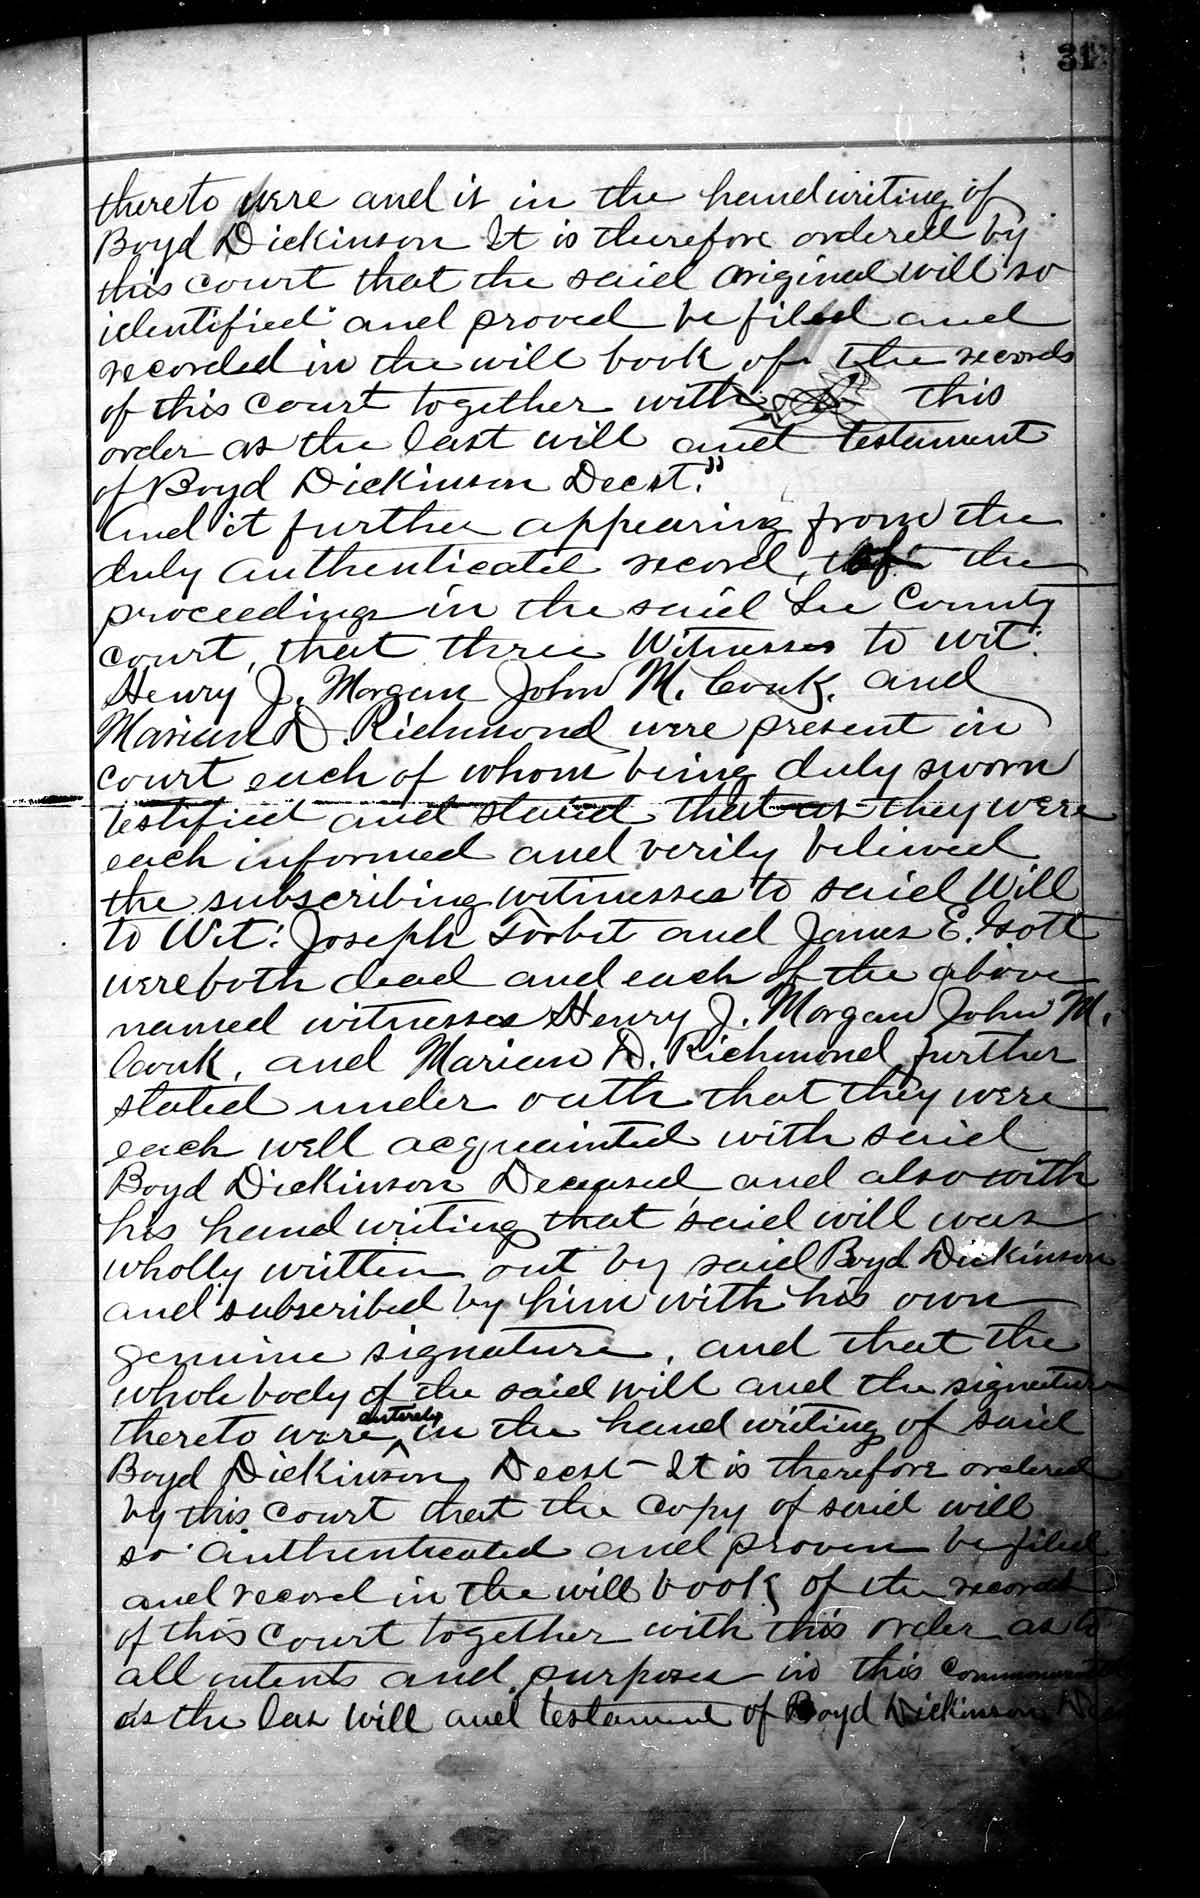 31
thereto were and is in the handwriting of
Boyd Dickinson It is therefore ordered by
this court that the said original will so
identified and proved be filed and
recorded in the will book of the records
of this court together with this
order as the last will and testament
of Boyd Dickinson Decst."
And it further appearing from the
duly authenticated record, of the
proceedings in the said Lee County
court, that three Witnesses to wit:
Henry J. Morgan John M. Couk. and
Marian D. Richmond were present in
court each of whom being duly sworn
testified and stated that as they were
each informed and verily believed
the subscribing witnesses to said Will
to Wit: Joseph Torbet and James E. Gott
were both dead and each of the above
named witnesses Henry J. Morgan John M.
Couk, and Marian D. Richmond further
stated under oath that they were
each well acquainted with said
Boyd Dickinson Deceased, and also with
his hand writing that said will was
wholly written out by said Boyd Dickinson
and subscribed by him with his own
genuine signature, and that the
whole body of the said will and the signature
thereto were entirely in the hand writing of said
Boyd Dickinson, Decst - It is therefore ordered
by this court that the copy of said will
so authenticated and proven be filed
and record in the will book of the records
of this court together with this order as to
all intents and purposes in this commonwealth
as the las will and testament of Boyd Dickinson